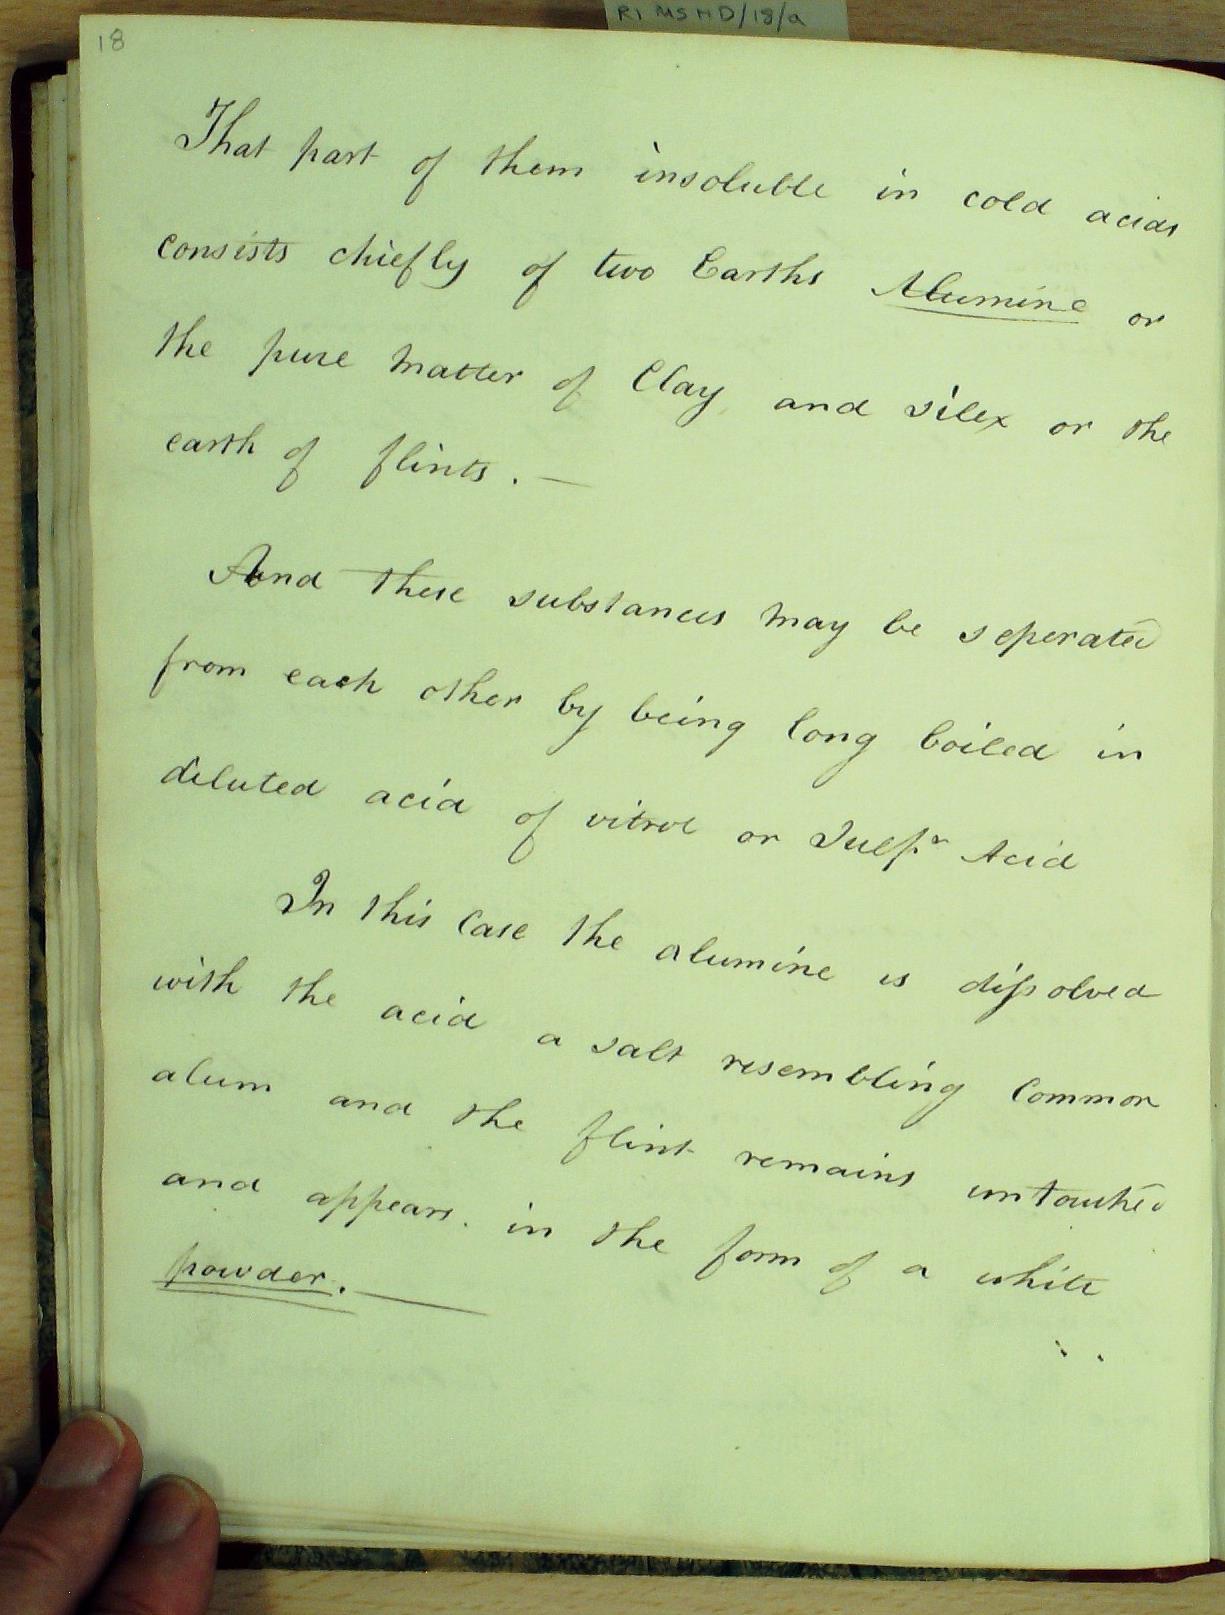 RI MS HD/18/a
18
That part of them insoluble in cold acids
consists chiefly of two Earths Alumine or
the pure matter of Clay and silex or the
earth of flints. —
And these substances may be seperated
from each other by being long boiled in
diluted acid of vitrol or Sulfr Acid
In this case the alumine is dissolved
with the acid a salt resembling Common
alum and the flint remains untouched
and appears in the form of a white
powder. —